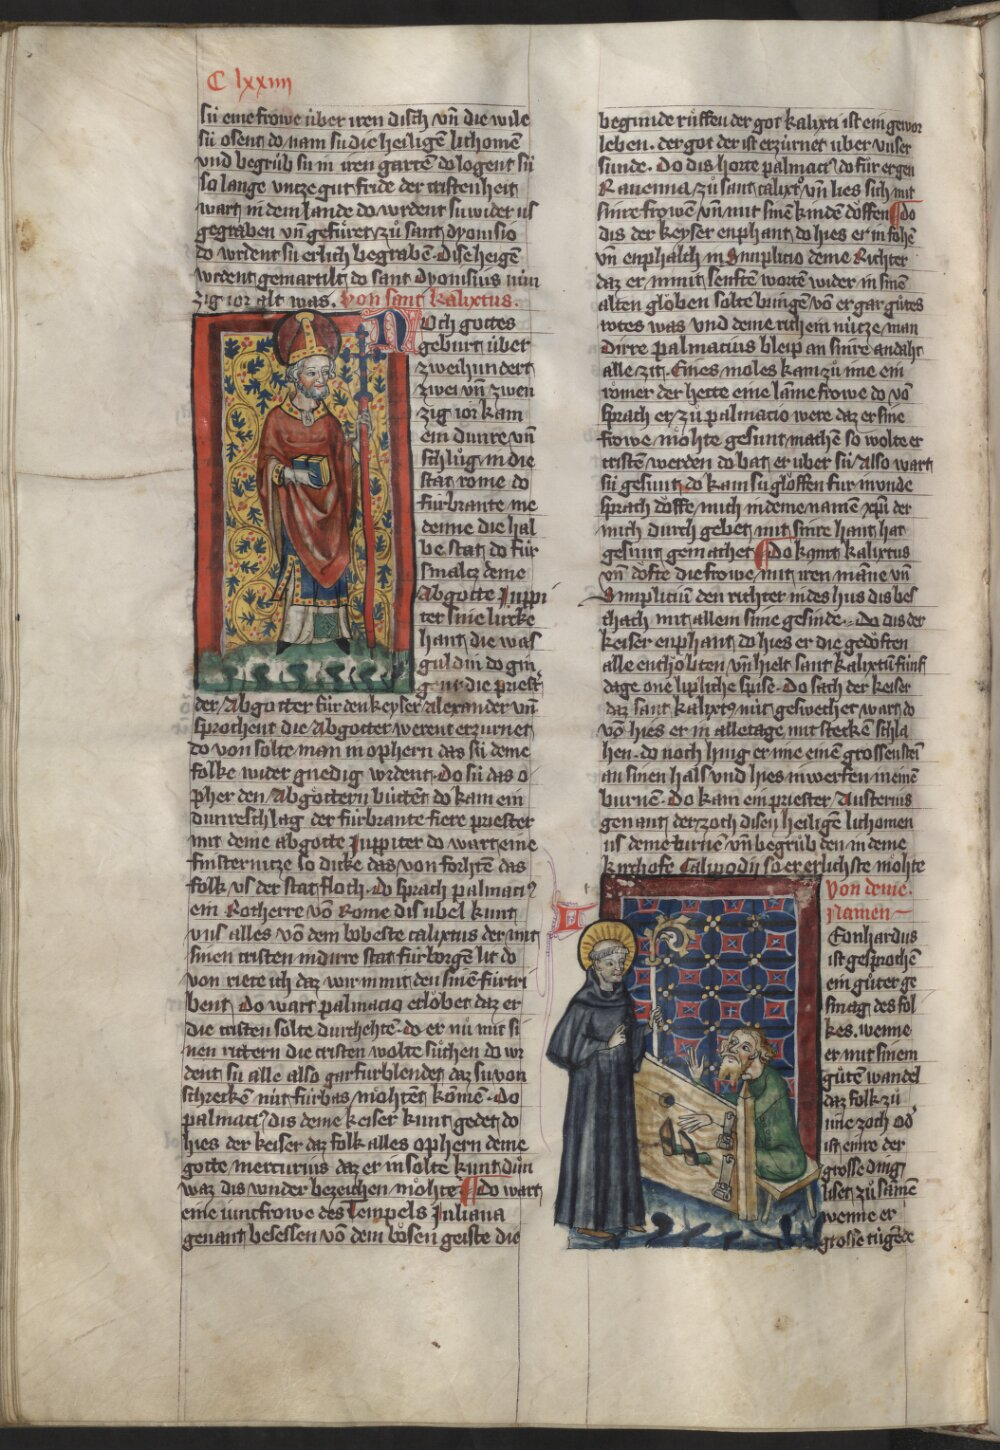 C lxxiiii
sü eine frowe über iren disch vn̄ die wile
sü osent do nam sü die heiligē lichomē
vnd begrůb sü in iren gartē do logent sü
so lange vntze gůt fride der cristenheit
wart in dem lande do wrdent sü wider us
gegraben vn̄ gefüret zů sant dyonisio
do wrdent sü erlich begrabē. Dise heigē
wrdent gemartilt do sant Dyonisius nün
zig ior alt was. Von sant kalixtus.
NOch gottes
geburt über
zweihundert
zwei vn̄ zwen
zig ior kam
ein dunre vn̄
schlůg in die
stat rome do
fürbrante me
denne die hal
be stat do für
smalcz deme
Abgotte Juppi
ter sine lincke
hant die was
guldin do gin
gent die priest̄
der Abgötter für den keyser Alexander vn̄
sprochent die Abgötter werent erzürnet
do von solte man in ophern das sü deme
folke wider gnedig wrdent. Do sü das o
pher den Abgöttern büttēt do kam ein
dunreschlag der fürbrante fiere priester
mit deme abgotte Juppiter do wart eine
finsternitze so dicke das von forhtē das
folk vs der stat floch. Do sprach palmaciꝰ
ein Rotherre vō Rome dis übel kunt
vns alles vō dem bobeste calixtus der mit
sinen cristen in dirre stat fürborgē lit do
von riete ich daz wir in mit den sinē fürtri
bent. Do wart palmacio erlöbet daz er
die cristen solte durchehtē. do er nů mit si
nen rittern die cristen wolte sůchen do wr
dent sü alle also gar fürblendet daz sü von
schreckē nüt fürbas möhtēt kōmē. Do
palmaciꝰ dis deme keiser kunt gedet do
hies der keiser daz folk alles ophern deme
gotte mercurius daz er in solte kunt dūn
waz dis wnder bezeichen möhte. do wart
eine iuncfrowe des Tempels Juliana
genant besessen vō dem bösen geiste die
begunde rüffen der got kalixti ist ein gewor
leben. der got der ist erzürnet über vnser
sünde. Do dis horte palmaciꝰ do für er gen
Rauenna zů sant calixtꝰ vn̄ lies sich mit
sinre frowē vn̄ mit sinē kindē döffen do
dis der keyser enphant do hies er in fohē
vn̄ enphalch in Simplicio deme Richter
daz er in mit senftē wortē wider in sinē
alten glöben solte bringē vō er gar gůtes
rotes was vnd deme riche ein nütze man
dirre palmacius bleip an sinre andaht
alle zit. Eines moles kam zů ime ein
römer der hette eine lāme frowe do vō
sprach er zů palmacio were daz er sine
frowe möhte gesunt machē so wolte er
cristē werden do bat er über sü also wart
sü gesunt do kam sü glöffen fur in vnde
sprach döffe mich in deme namē xp̄i der
mich durch gebet mit sinre hant hat
gesunt gemachet do kāmt kalixtus
vn̄ döfte die frowe mit iren māne vn̄
Simpliciū den richter in des hus dis bes
chach mit allem sime gesinde. Do dis der
keiser enphant do hies er die gedöften
alle enthöbten vn̄ hielt sant kalixtū fünf
dage one lipliche spise. Do sach der keiser
daz sant kalixtꝰ nüt geswechet wart do
vō hies er in alletage mit steckē schla
hen. do noch hing er ime einē grossen stein
an sinen hals vnd hies in werfen in einē
burnē. Do kam ein priester Austerius
genant der zoch disen heiligē lichomen
us deme burnē vn̄ begrůb den in deme
kirchofe Calipodij so er erlichste möhte
Von deme.
Namen
LEonhardus
ist gesprochē
ein gůter ge
smag des fol
kes. wenne
er mit sinem
gůtē wandel
daz folk zů
ime zoch od̓
ist einre der
grosse ding
liset zů samē
wenne er
grosse tugēde